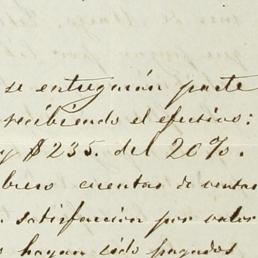 se entregarán parte
recibiendo el efectivo:
y $235. del 20%.
brero cuentas de ventas
satisfaccion por valor
hayan sido pagados